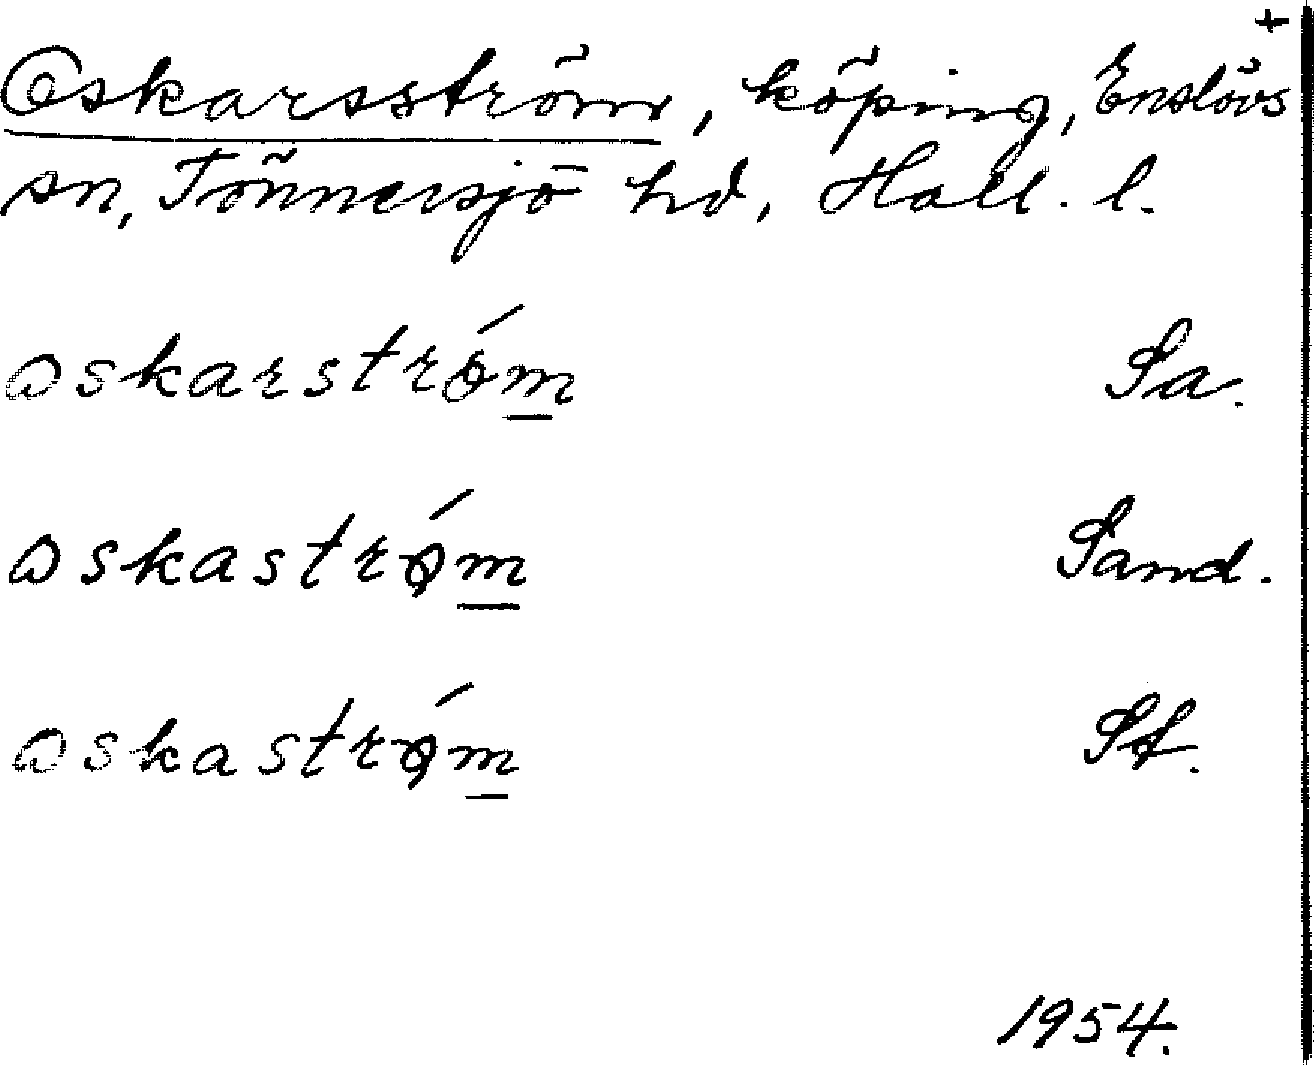 Oskarsström, köping, Enslövs +
sn, Tönnersjö hd, Hall. l.
oskarström Sa.
oskaström Sand.
oskaström St.
1954.